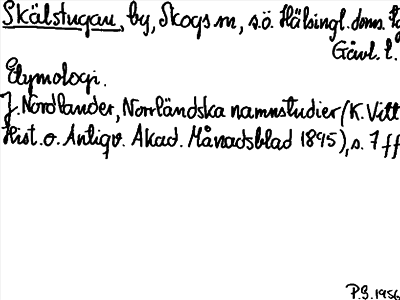 Skålstugan, by, Skogs sn, s.ö. Hälsingl. doms.
Gävl. l.
Etymologi.
J. Nordlander, Norrländska namnstudier (K. Vitt
Hist. o. Antiqv. Akad. Månadsblad 1895), s. 7 ff
P.G. 1956